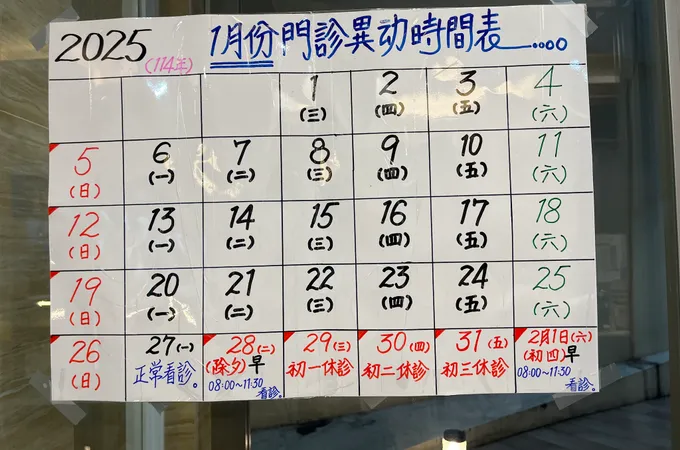 2025 (114年) 1月份門診異动時間表....
1 2 3 4
(三) (四) (五) (六)
5 6 7 8 9 10 11
(日) (一) (二) (三) (四) (五) (六)
12 13 14 15 16 17 18
(日) (一) (二) (三) (四) (五) (六)
19 20 21 22 23 24 25
(日) (一) (二) (三) (四) (五) (六)
26 27(一) 28(二) 29(三) 30(四) 31(五) 2月1日(六)
(日) 正常看診。 (除夕)早 初一休診 初二休診 初三休診 (初四)早
08:00~11:30 08:00~11:30
看診。 看診。